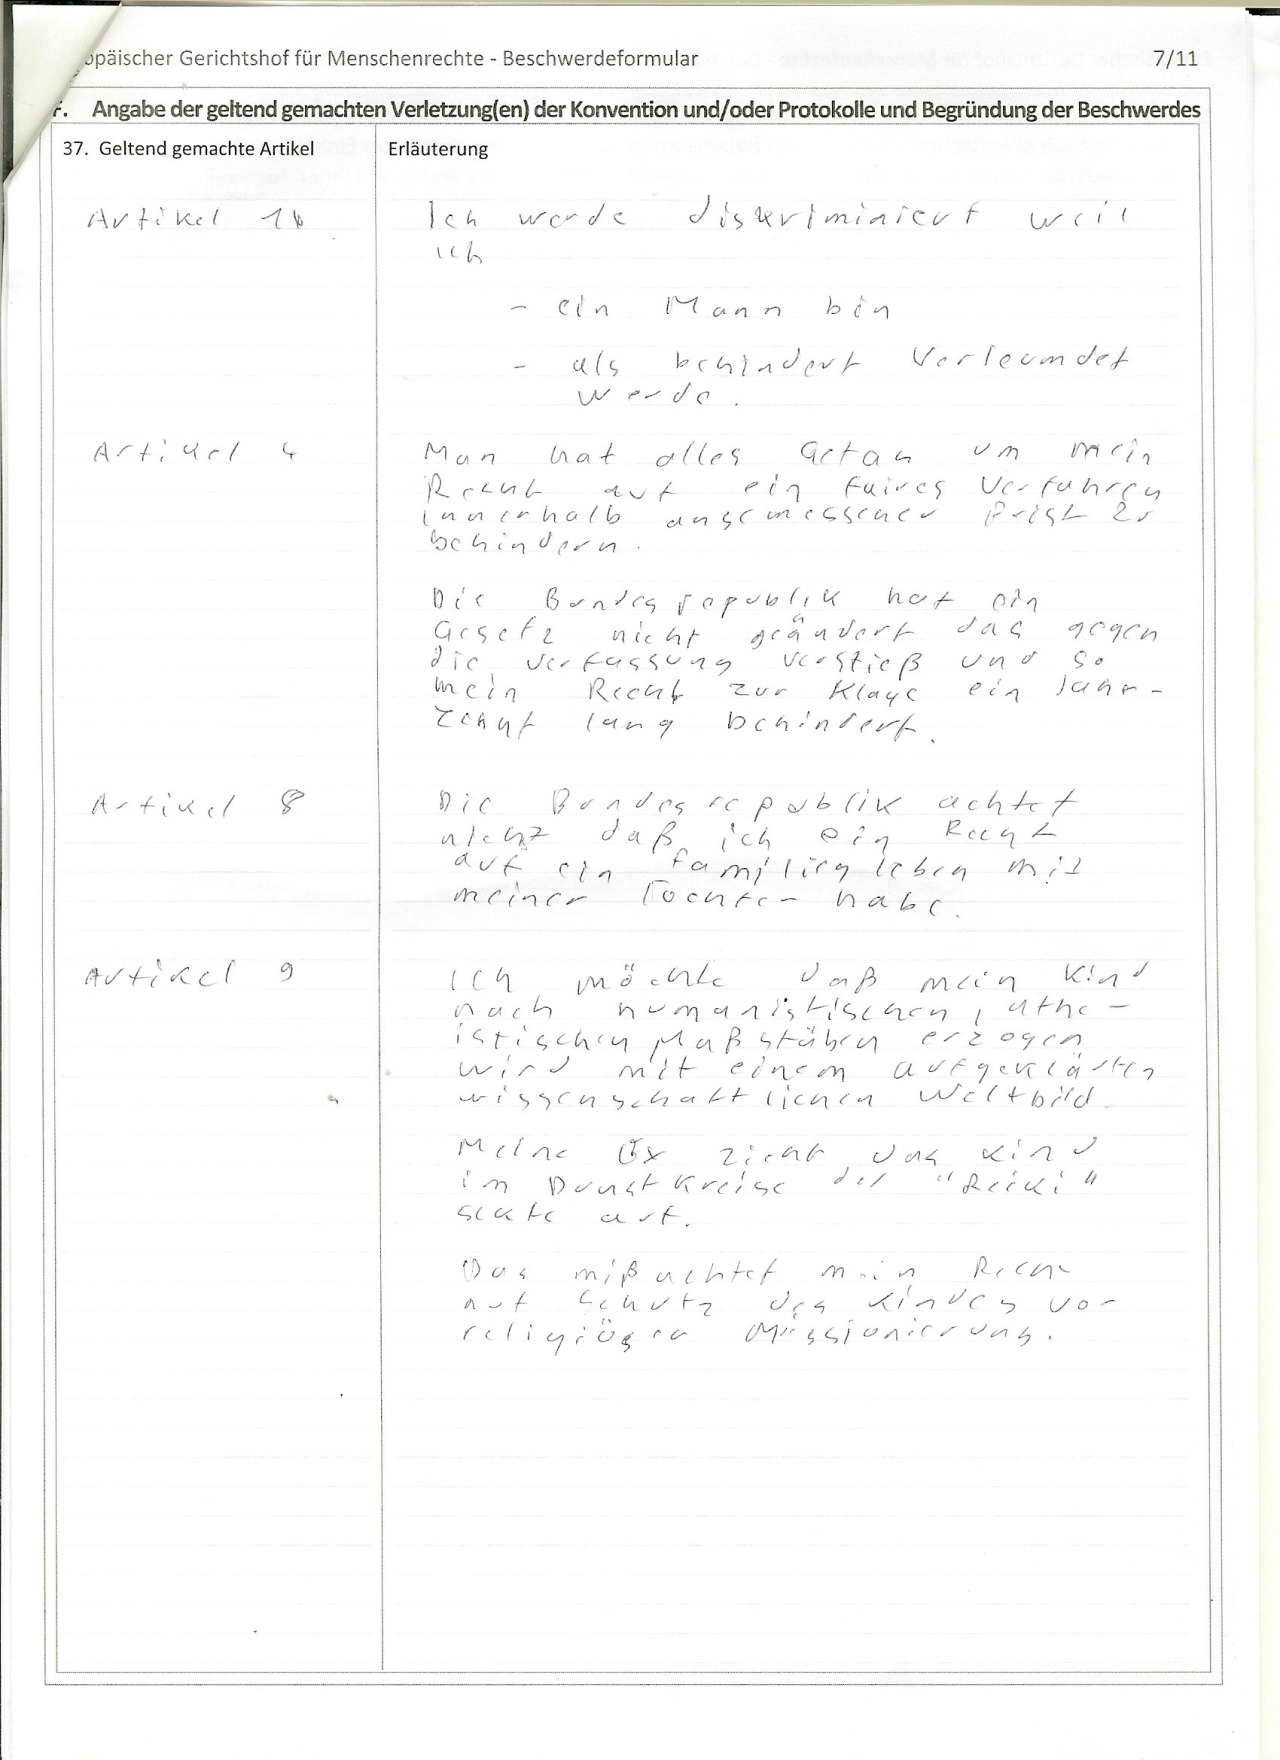 opäischer Gerichtshof für Menschenrechte - Beschwerdeformular 7/11
F. Angabe der geltend gemachten Verletzung(en) der Konvention und/oder Protokolle und Begründung der Beschwerdes
37. Geltend gemachte Artikel Erläuterung
Artikel 14 Ich werde diskriminiert weil
ich
- ein Mann bin
- als behindert verleumdet
werde.
Artikel 4 Man hat alles getan um mein
Recht auf ein faires Verfahren
innerhalb angemessener Frist zu
behindern.
Die Bundesrepublik hat ein
Gesetz nicht geändert das gegen
die Verfassung verstieß und so
mein Recht zur Klage ein Jahr-
zehnt lang behindert.
Artikel 8 Die Bundesrepublik achtet
nicht daß ich ein Recht
auf ein Familienleben mit
meiner Tochter habe.
Artikel 9 Ich möchte daß mein Kind
nach humanistischen, athe-
istischen Maßstäben erzogen
wird mit einem aufgeklärten
wissenschaftlichen Weltbild.
Meine Ex zieht das Kind
im Dunstkreise der "Reiki"
Sekte auf.
Das mißachtet mein Recht
auf Schutz des Kindes vor
religiöser Missionierung.